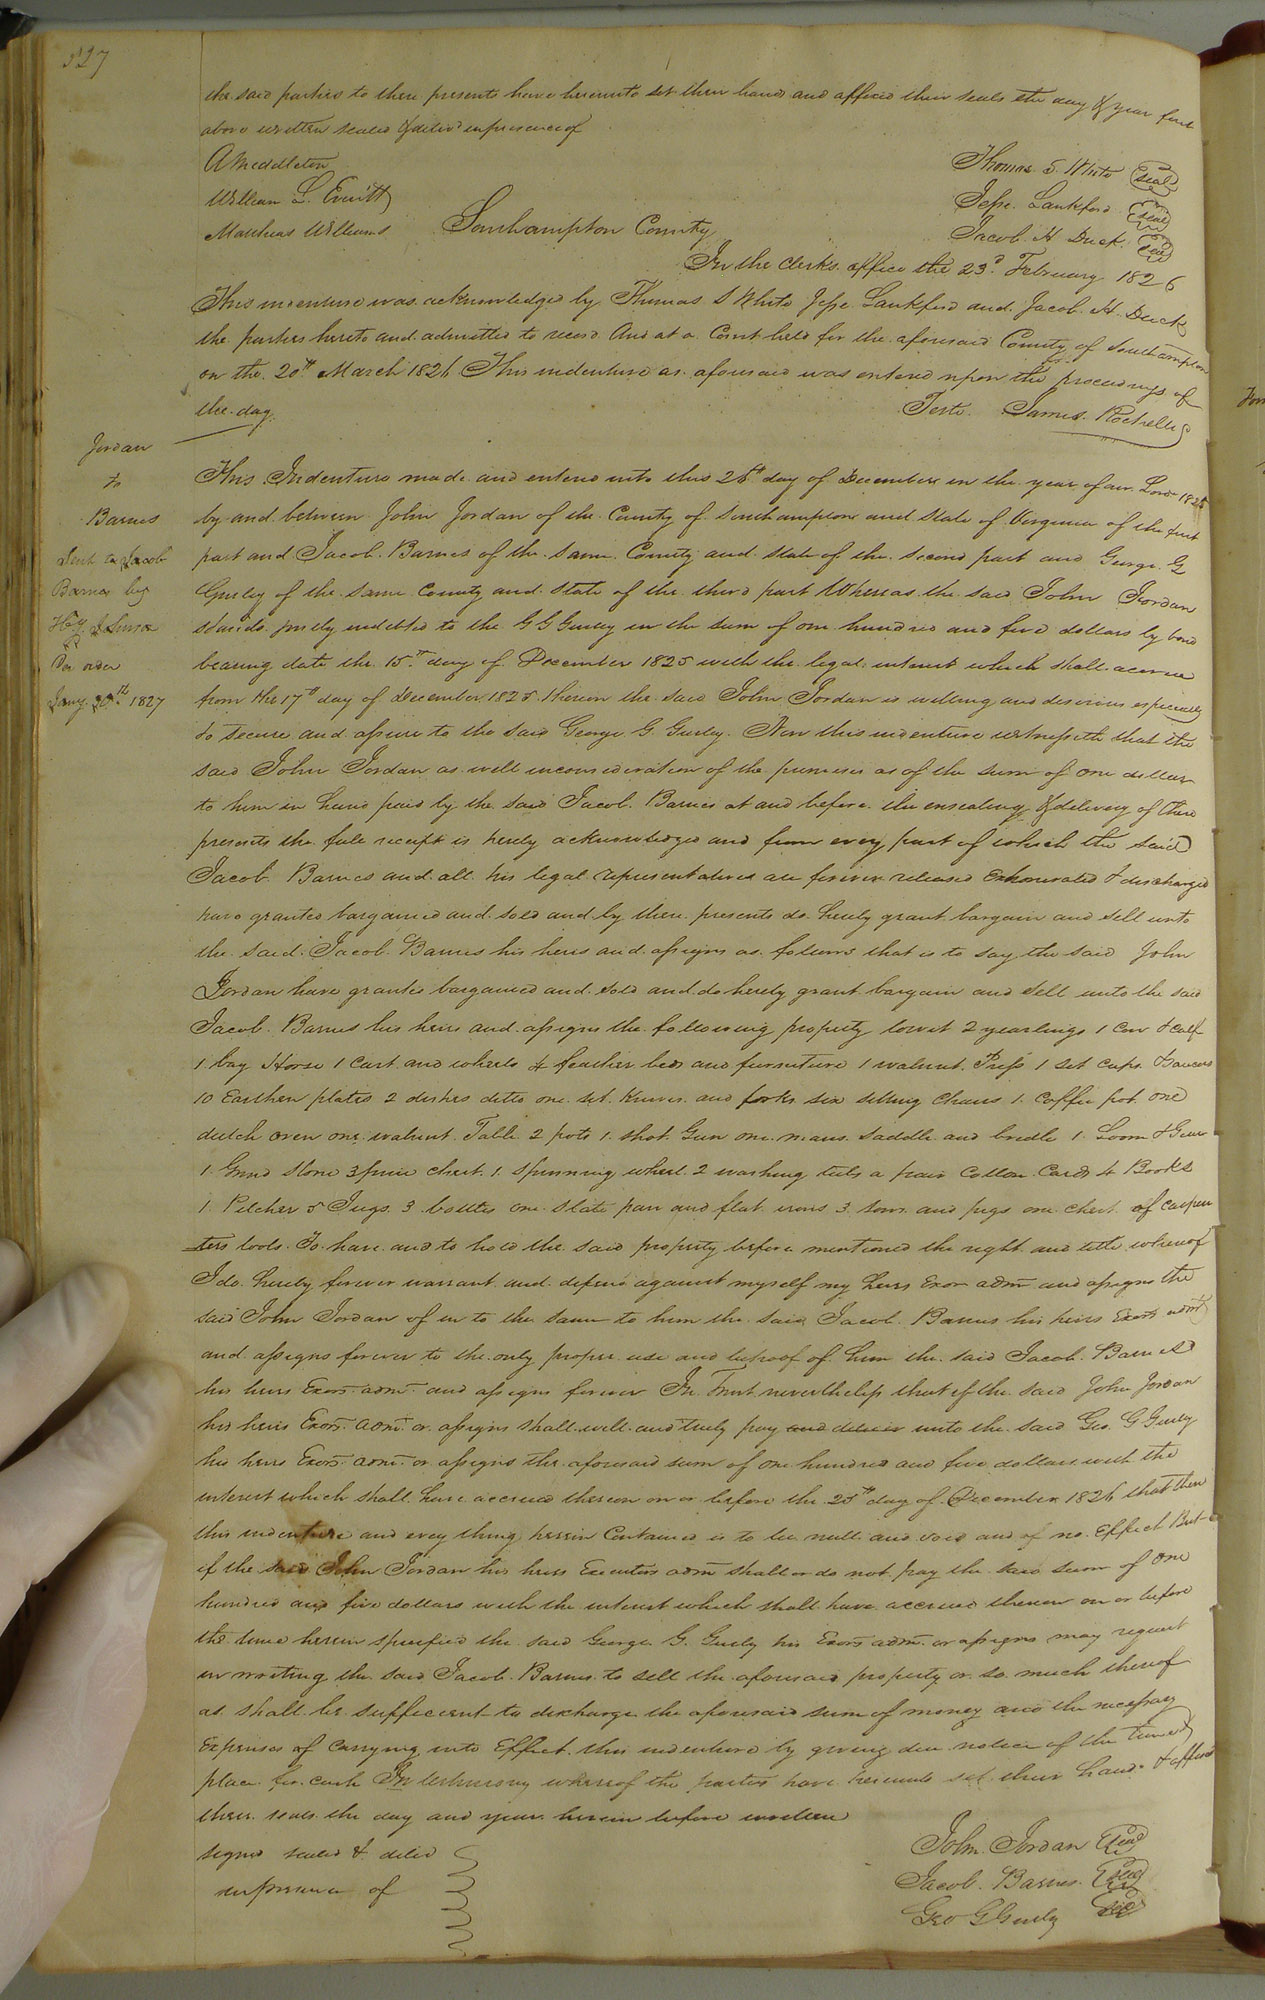 527
the said parties to these presents have hereunto set their hand and affixed their seals the day & year first
above written sealed & delivd in presence of
A Middleton
William L. Everitt
Matthias Williams
Thomas S. White seal
Jesse Lankford seal
Jacob H Duck seal
Southampton County
In the clerks office the 23d February 1826
This indenture was acknowledged by Thomas S White Jesse Lankford and Jacob H. Duck
the parties hereto and admitted to record And at a Court held for the aforesaid County of Southampton
on the 20th March 1826 This indenture as aforesaid was entered upon the proceedings of
the day.
Teste James Rochelle
Jordan
to
Barnes
Jacob
Barnes by
order
Jany. 30th 1827
This Indenture made and entered into this day of December in the year of our Lord 1825
by and between John Jordan of the County of Southampton and State of Virginia of the first
part and Jacob Barnes of the same County and state of the second part and George G
Gurley of the same County and state of the third part Whereas the said John Jordan
stands justly indebted to the G G Gurley in the sum of one hundred and five dollars by bond
bearing date the 15th day of December 1825 with the legal interest which shall accrue
from the 17th day of December 1825 thereon the said John Jordan is willing and desirous especially
to secure and assure to the said George G Gurley. Now this indenture witnesseth that the
said John Jordan as well inconsideration of the premises as of the sum of one dollar
to him in hand paid by the said Jacob Barnes at and before the ensealing & delivery of these
presents the full receipt is hereby acknowledged and from every part of which the said
Jacob Barnes and all his legal representatives are forever released Exhonerated & discharged
have granted bargained and sold and by these presents do hereby grant bargain and sell unto
the said Jacob Barnes his heirs and assigns as follows that is to say the said John
Jordan have granted bargained and sold and do hereby grant bargain and sell unto the said
Jacob Barnes his heirs and assigns the following property towit 2 yearlings 1 cow & calf
1 bay Horse 1 Cart and wheels 4 feather beds and furniture 1 walnut Press 1 set cups & saucers
10 Earthen plates 2 dishes ditto one set Knives and forks six sitting Chairs 1 Coffee pot one
dutch oven one walnut Table 2 pots 1 shot Gun one mans saddle and bridle 1 Loom & Gear
1 Grind stone 3 pine chest 1 spinning wheel 2 washing tubs a pair Cotton Cards 4 Books
1 Pitcher 5 Jugs 3 bottles one slate pan and flat irons 3 sows and pigs one chest of carpen
ters tools To have and to hold the said property before mentioned the right and title whereof
I do hereby forever warrant and defend against myself my heirs Exors adm and assigns the
said John Jordan of in to the same to him the said Jacob Barnes his heirs Exors adm
and assigns forever to the only proper use and behoof of him the said Jacob Barnes
his heirs Exors adm. and assigns forever In Trust nevertheless that if the said John Jordan
his heirs Exors adm. or assigns shall well and truly pay and deliver unto the said Geo. G Gurley
his heirs Exors adm. or assigns the aforesaid sum of one hundred and five dollars with the
interest which shall have accrued thereon on or before the 25th day of December 1826 that then
this indenture and every thing herein Contained is to be null and void and of no Effect But
if the said John Jordan his heirs Executors adm shall or do not pay the said sum of one
hundred and five dollars with the interest which shall have accrued thereon on or before
the time herein specified the said George G. Gurley his Exors adm. or assigns may request
in writing the said Jacob Barnes to sell the aforesaid property or so much thereof
as shall be sufficient to discharge the aforesaid sum of money and the necessary
Expenses of Carrying into Effect this indenture by giving due notice of the time &
place for cash In testimony whereof the parties have hereunto set their hand & affixed
their seals the day and year herein before written
signed sealed & delivd
in presence of
John Jordan seal
Jacob Barnes seal
Geo G Gurley seal